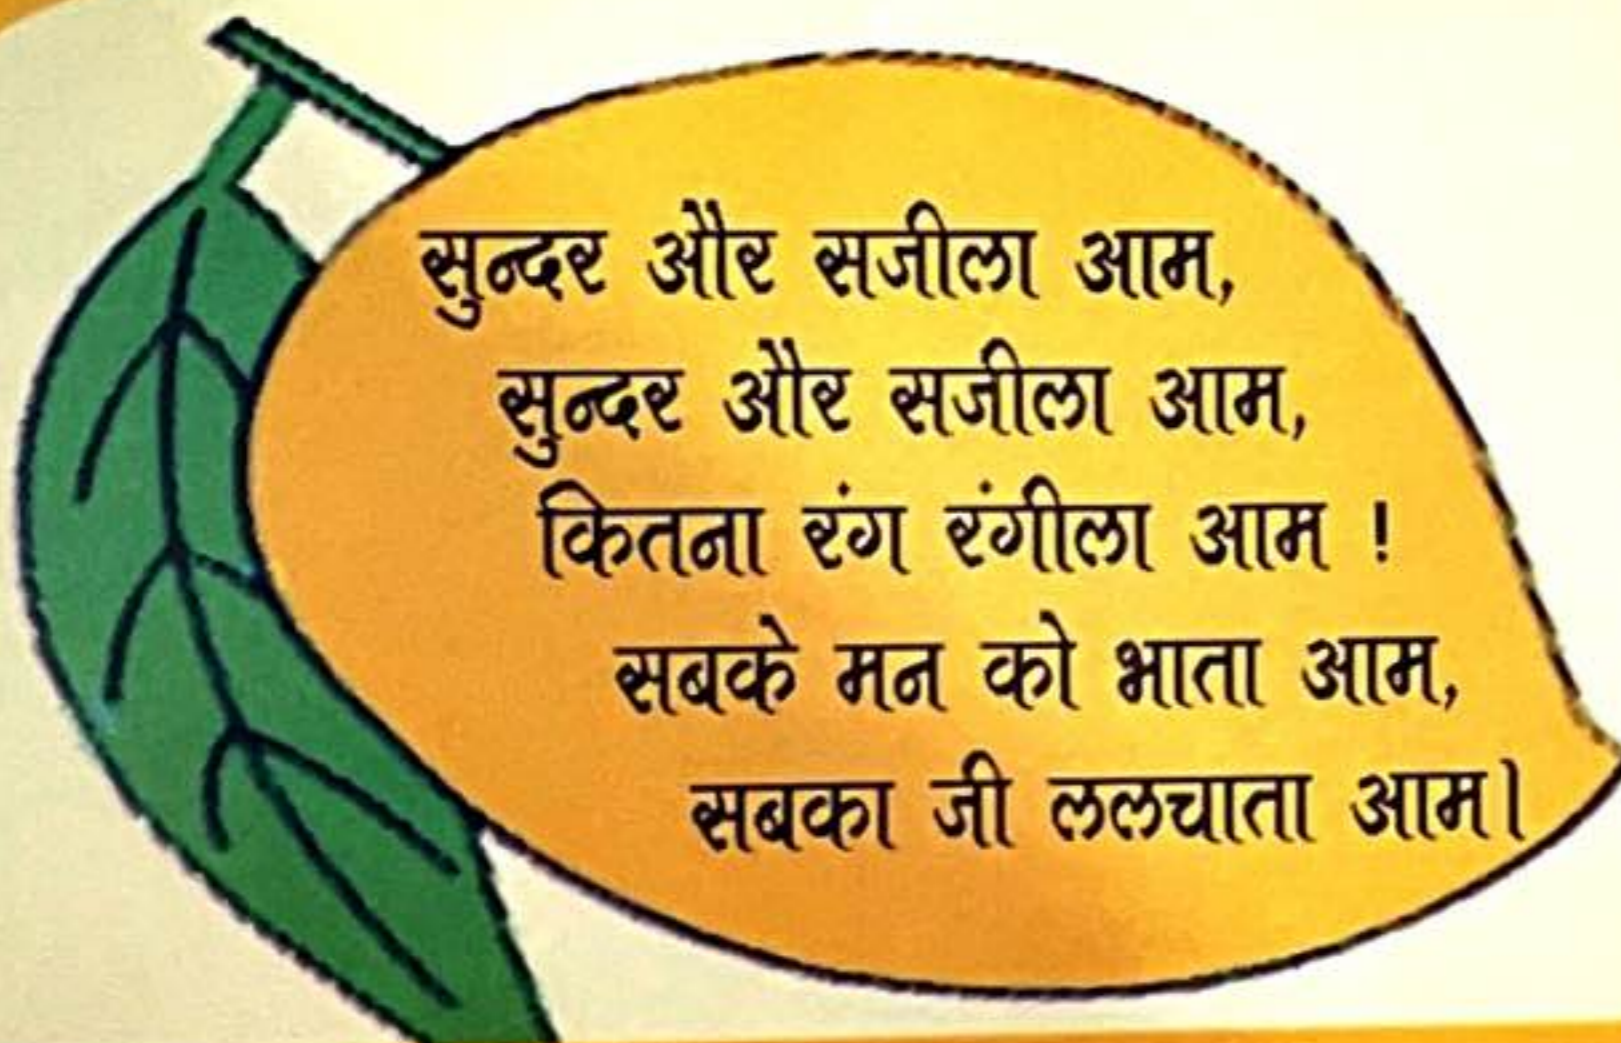 सुन्दर और सजीला आम,
सुन्दर और सजीला आम,
कितना रंग रंगीला आम !
सबके मन को भाता आम,
सबका जी ललचाता आम।